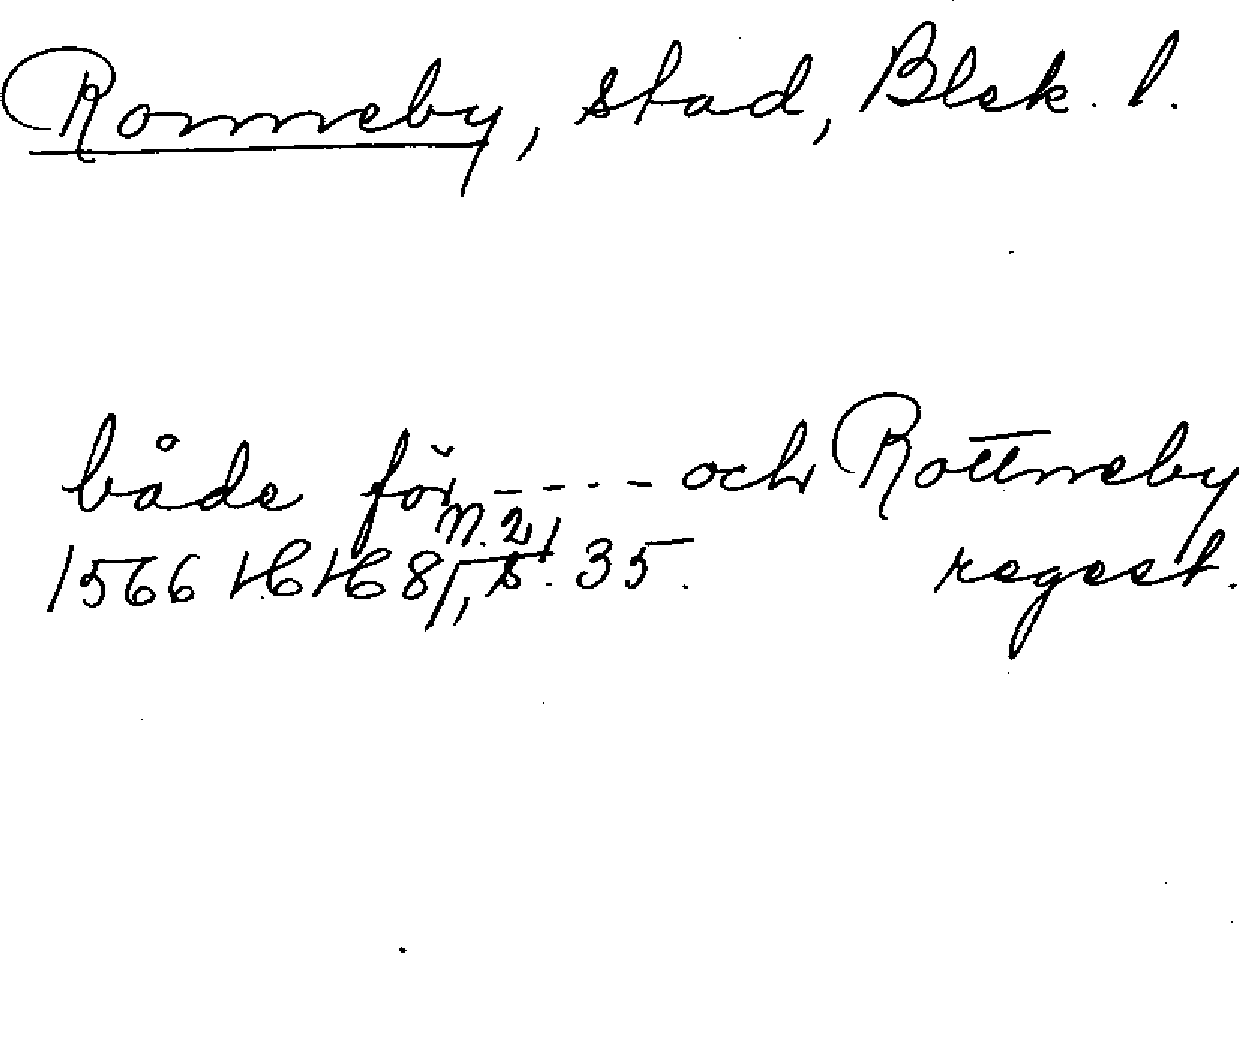 Ronneby, stad, Blek. l.
både för - - - - - och Rottneby
n. 21
1566 HH 8/1, s. 35. regest.